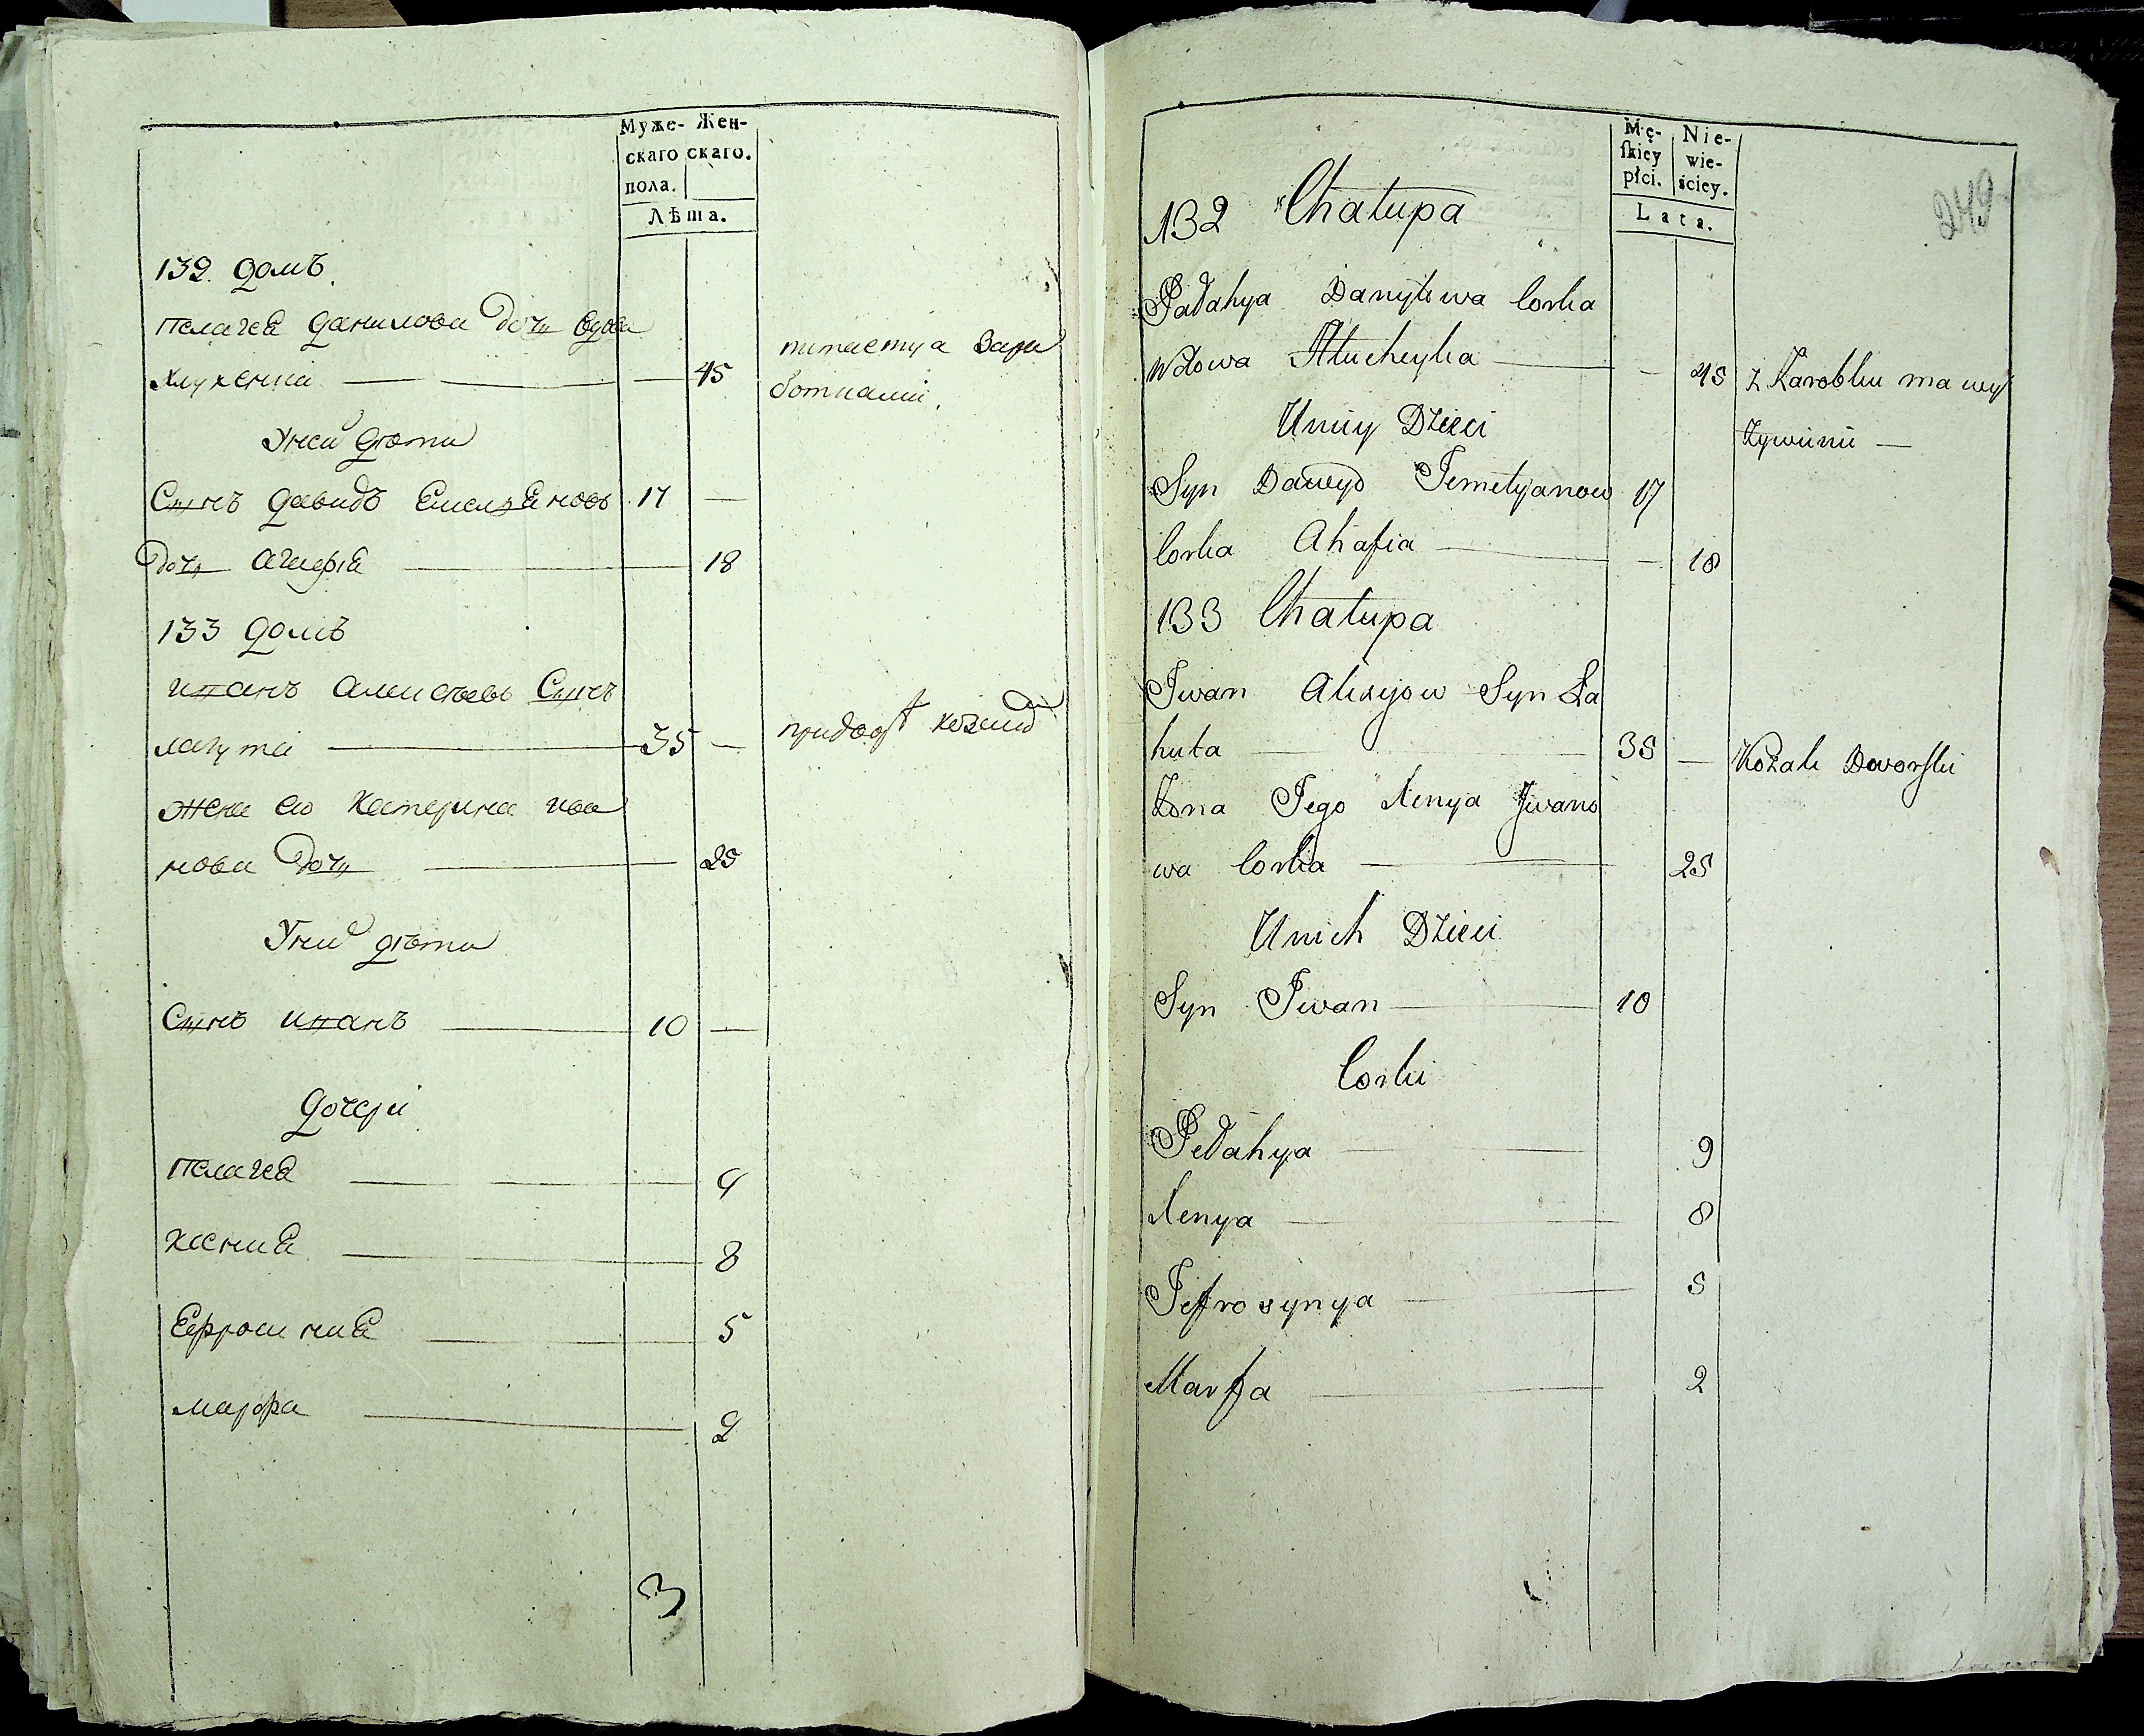 Муже- Жен-
скаго скаго.
пола.
Лѣта.
132. домъ.
пелагея данилова дочь вдова
Хлухенка — 45
питаетца зара
ботками.
У ней дѣти
Сынъ давидъ Емельяновъ 17 —
дочь агафія — 18
133 домъ
иванъ алексѣевъ Сынъ
лагута — 35 —
жена его катерина ива
нова дочь — 25
У них дѣти
Сынъ иванъ — 10 —
дочери
пелагея — 9
ксения — 8
Ефросиния — 5
марфа — 2
3
Mę-
skiey
płci.
Nie-
wie-
ściey.
Lata.
249
132 Chałupa
Pałahya Danyłowa Corka
Wdowa Hłucheyka — - 45 Z Zarobku ma wyż
żywienie —
U niey Dzieci
Syn Dawyd Jemelyanow 17
Corka Ahafia — - 18
133 Chałupa
Jwan Alexyow Syn Ła
huta — 35 — Kozak Dworski
Żona Jego Xenya Jwano
wa Corka — 25
U nich Dzieci
Syn Jwan — 10
Corki
Pełahya — 9
Xenya — 8
Jefrosynya — 5
Marfa — 2